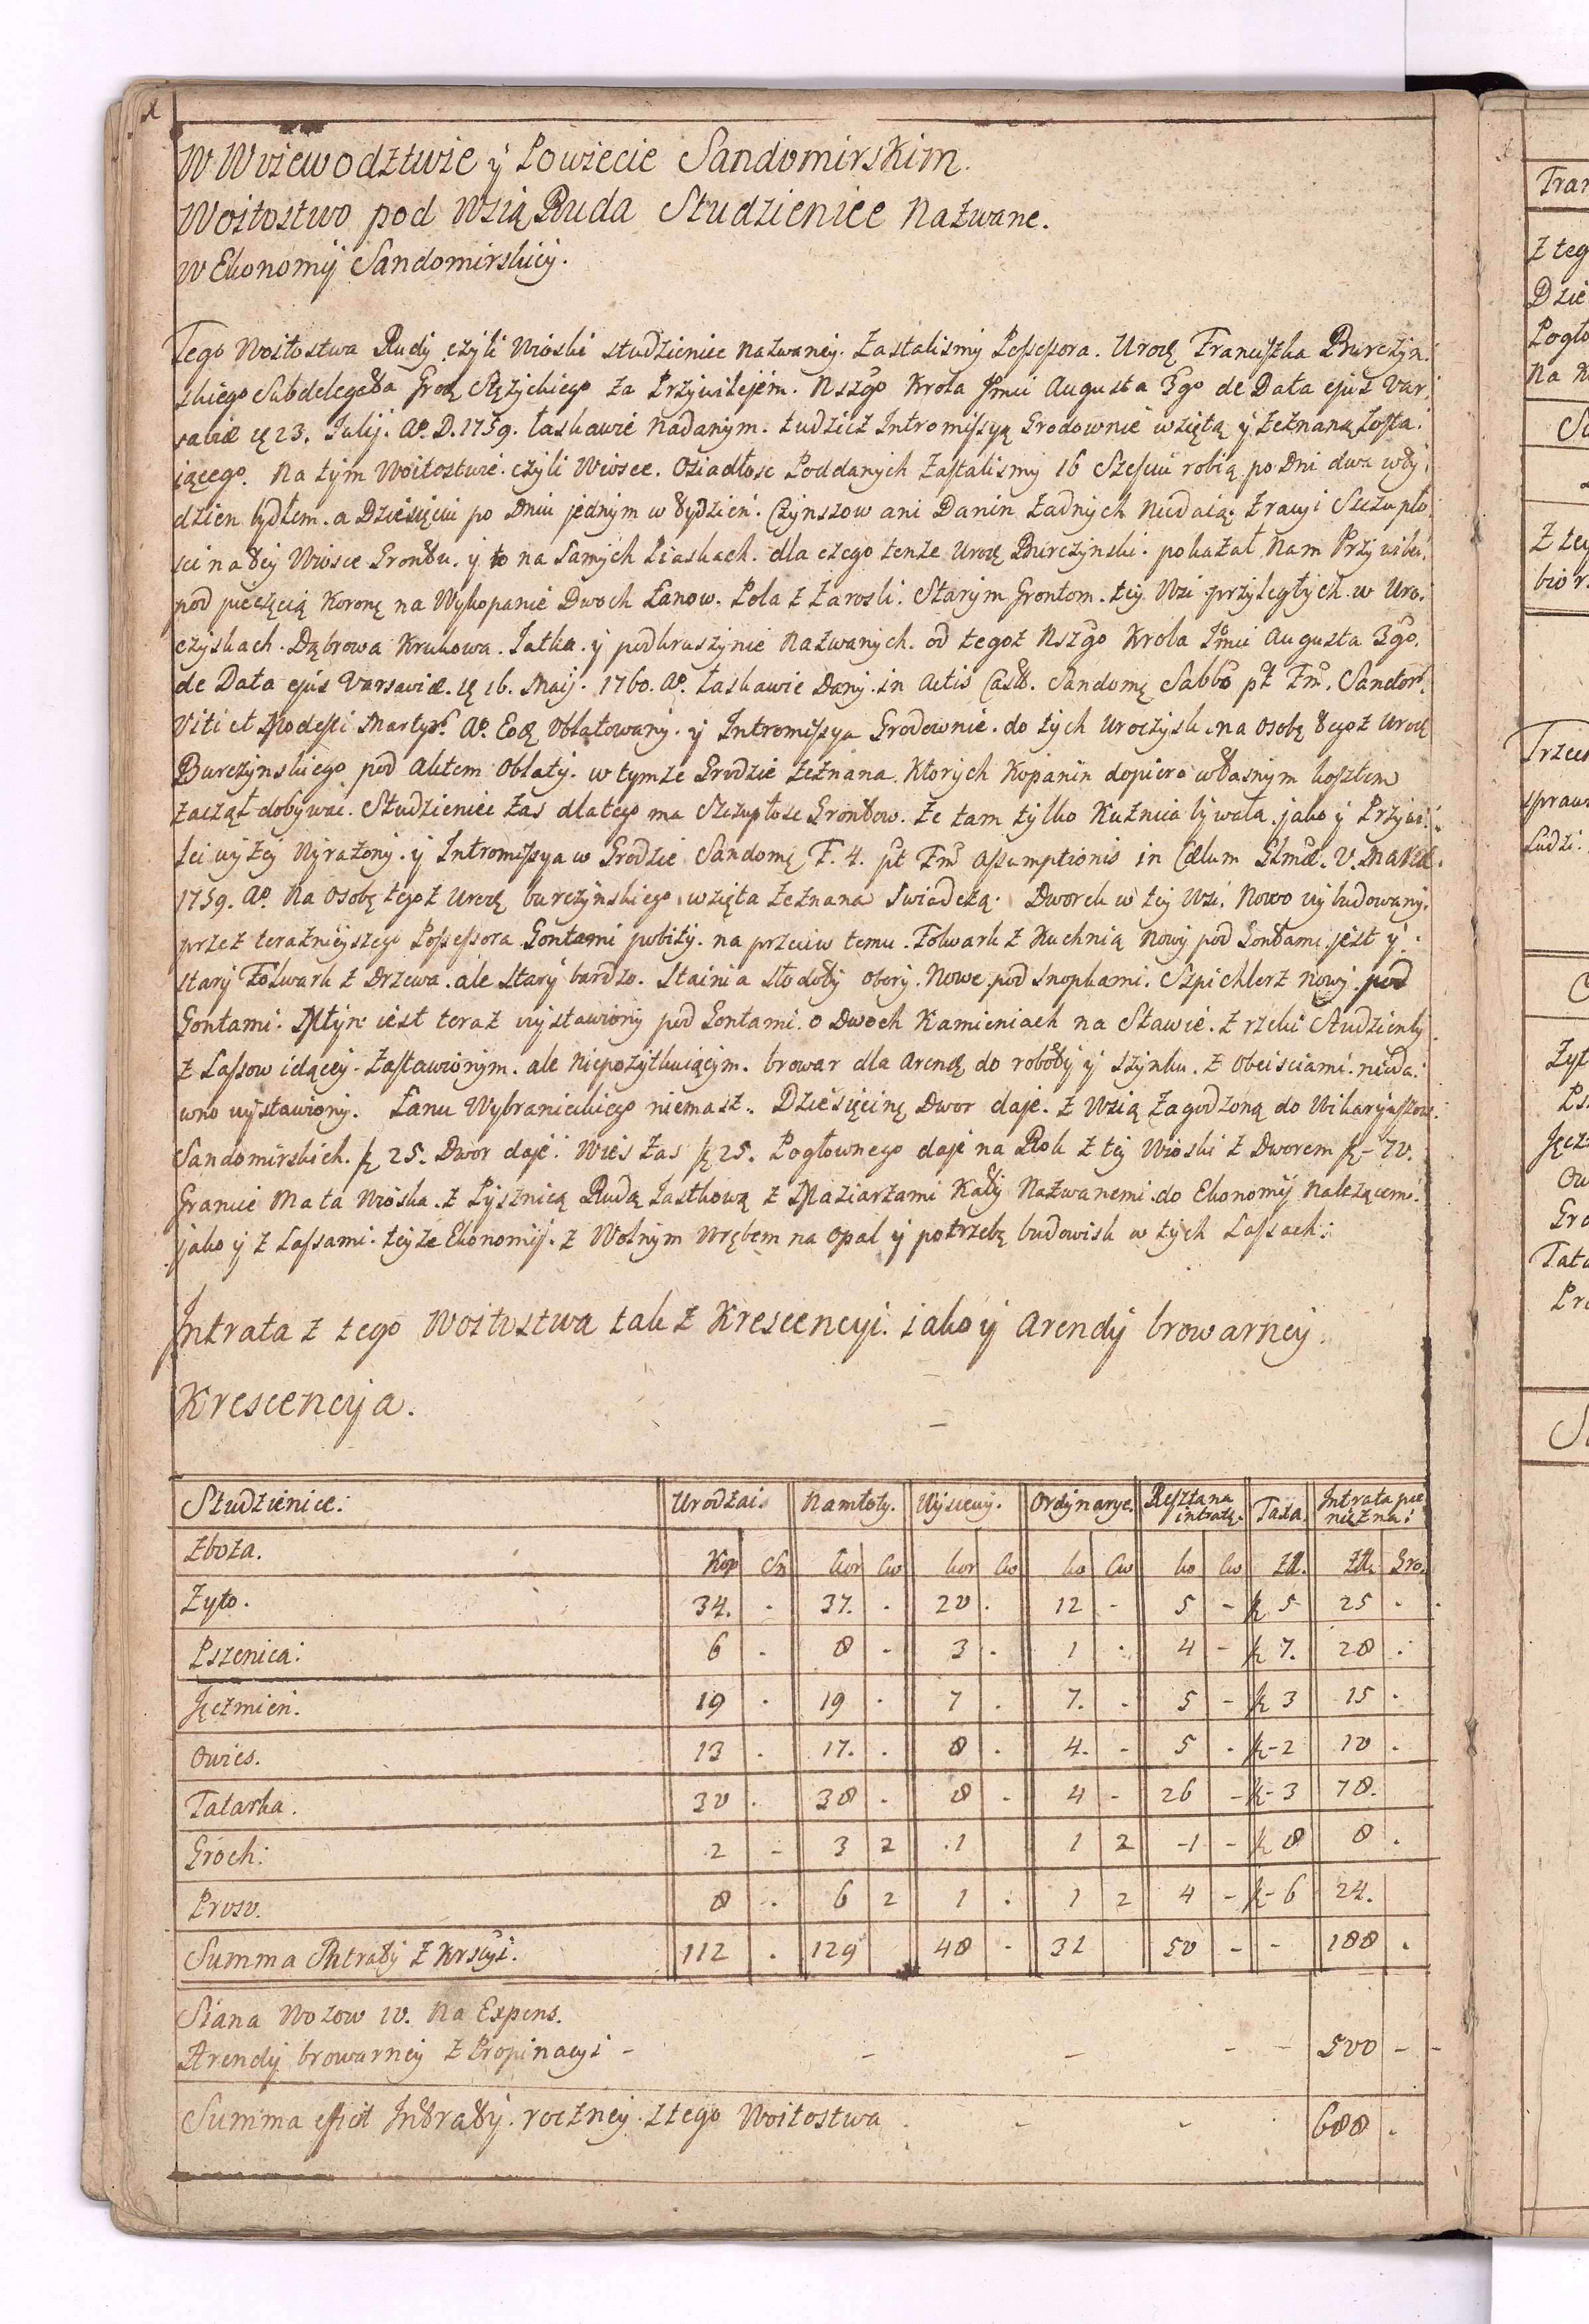 W Woiewodztwie ÿ Powiecie Sandomirskim.
Woitostwo pod Wsią Ruda Studzieniec Nazwane.
w Ekonomÿ Sandomirskieÿ.
Tego Woitostwa Rudÿ czÿli Wioski studzieniec nazwaneÿ. Zastalismÿ Possessora. Urodz Franciszka Burczÿn.
skiego Subdelegata Grodz Stężÿckiego za Przÿwilejem. Nszgo Krola Jmci Augusta 3go de Data ejus Var
saviæ d 23. Julij. Ao. D. 1759. łaskawie nadanÿm. tudziesz Intromissÿą Grodownie wziętą ÿ zeznaną zosta.
iącego. Na tÿm Woitostwie. czÿli Wiosce. Osiadłosc Poddanÿch zastalismÿ 16 Szesciu robią po Dni dwa w tÿ.
dzien bÿdłem. a Dziesięciu po Dniu jednÿm w tÿdzień. Czÿnszow ani Danin żadnÿch niedaią. z racÿi Szczupło.
sci na teÿ Wiosce Grontu. ÿ to na samÿch Piaskach. dla czego tenze Urodz Burczÿnski. pokazał Nam Przÿwileÿ.
pod pieczęcią Koronę na Wÿkopanie Dwoch Łanow. Pola z zarosli. Starÿm Grontom. teÿ Wsi przÿległÿch. w Uro.
czÿskach. Dąbrowa Krukowa. Jatka. ÿ podkruszÿnie Nazwanÿch. od tegoz Nszgo Krola Jmci Augusta 3go.
de Data ejus Varsaviæ. d 16. Maij. 1760. Ao. łaskawie Danÿ. in Actis Castr. Sandom Sabbo pt Fm. Sanctor.
Viti et Modesti Martÿr. Ao. Eod Oblatowanÿ. ÿ Intromissÿa Grodownie. do tÿch Uroczÿsk. na osobę tegoz Urodz
Burczÿnskiego pod Aktem Oblatÿ. w tÿmze Grodzie zeznana. Ktorÿch Kopanin dopiero własnÿm kosztem
zaczął dobÿwac. Studzieniec zas dlatego ma Szczupłosc Grontow. ze tam tÿlko Kuznica bÿwała. jako ÿ Przÿwi.
leÿ wÿżeÿ wÿrażonÿ. ÿ Intromissÿa w Grodzie Sandom F. 4. pt Fm Assumptionis in Cælum Btmæ. V. Mariæ.
1759. Ao. Na osobę tegoz Urodz burczÿnskiego. wzięta zeznana swiadczą. Dworek w teÿ Wsi. Nowo wÿbudowanÿ.
przez teraznieÿszego Possessora Gontami pobitÿ. na przeciw temu. Folwark z Kuchnią Nowÿ pod Gontami. jest ÿ
starÿ Folwark z Drzewa. ale starÿ bardzo. stainia stodołÿ oborÿ. Nowe. pod snopkami. Szpichlerz nowÿ. pod
Gontami. Młÿn iest teraz wÿstawionÿ pod Gontami. o Dwoch Kamieniach na Stawie. z rzeki Studzienkÿ
z Lassow idąceÿ. zastawionÿm. ale niepozÿtkuiącÿm. browar dla Arend do robotÿ ÿ szÿnku. z obeisciami. nieda.
wno wÿstawionÿ. Łanu Wÿbranieckiego niemasz. Dziesięcinę Dwor daje. z Wsią zagodzoną do Wikarÿuszow.
Sandomirskich. f 25. Dwor daje. Wies zas f 25. Pogłownego daje na Rok z teÿ Wioski z Dworem f - 70.
Granice ma ta Wioska. z Pÿsznicą Rudą Jastkową z Maziarzami Kałÿ Nazwanemi. do Ekonomÿ Nalezącemi.
jako ÿ z Lassami. teÿze Ekonomÿ. z Wolnÿm Wrębem na opal ÿ potrzebę budowisk w tÿch Lassach.
Intrata z tego Woitostwa tak z Krescencÿi. iako ÿ Arendÿ browarneÿ.
Krescencÿa.
Studzieniec. Urodzaie Namłotÿ. Wÿsiewÿ. Ordÿnarÿe. Reszta na intratę. Taxa. Intrata pie nięzna.
Zboza. Kop Sn kor cw kor cw ko cw ko cw Złł. Złł. Gro.
Zÿto. 34. . 37. . 20 . 12 - 5 - f 5 25 .
Pszenica. 6 . 8 . 3 . 1 . 4 - f 7. 28 .
Jęczmień. 19 . 19 . 7 . 7. . 5 - f 3 15 .
Owies. 13 . 17. . 8 . 4. - 5 . f - 2 10 .
Tatarka. 30 . 38 . 8 - 4 - 26 - f - 3 78.
Groch. 2 - 3 2 1 1 2 1 - f 8 8 .
Proso. 8 . 6 2 1 . 1 2 4 - f - 6 24.
Summa Intratÿ z Krscÿi. 112 . 129 48 - 31 50 - - 188 .
Siana Wozow 10. Na Expens.
Arendÿ browarneÿ z Propinacÿi - - - - - 500 - -
Summa efficit Intratÿ. roczneÿ. z tego Woitostwa . - - 688 .